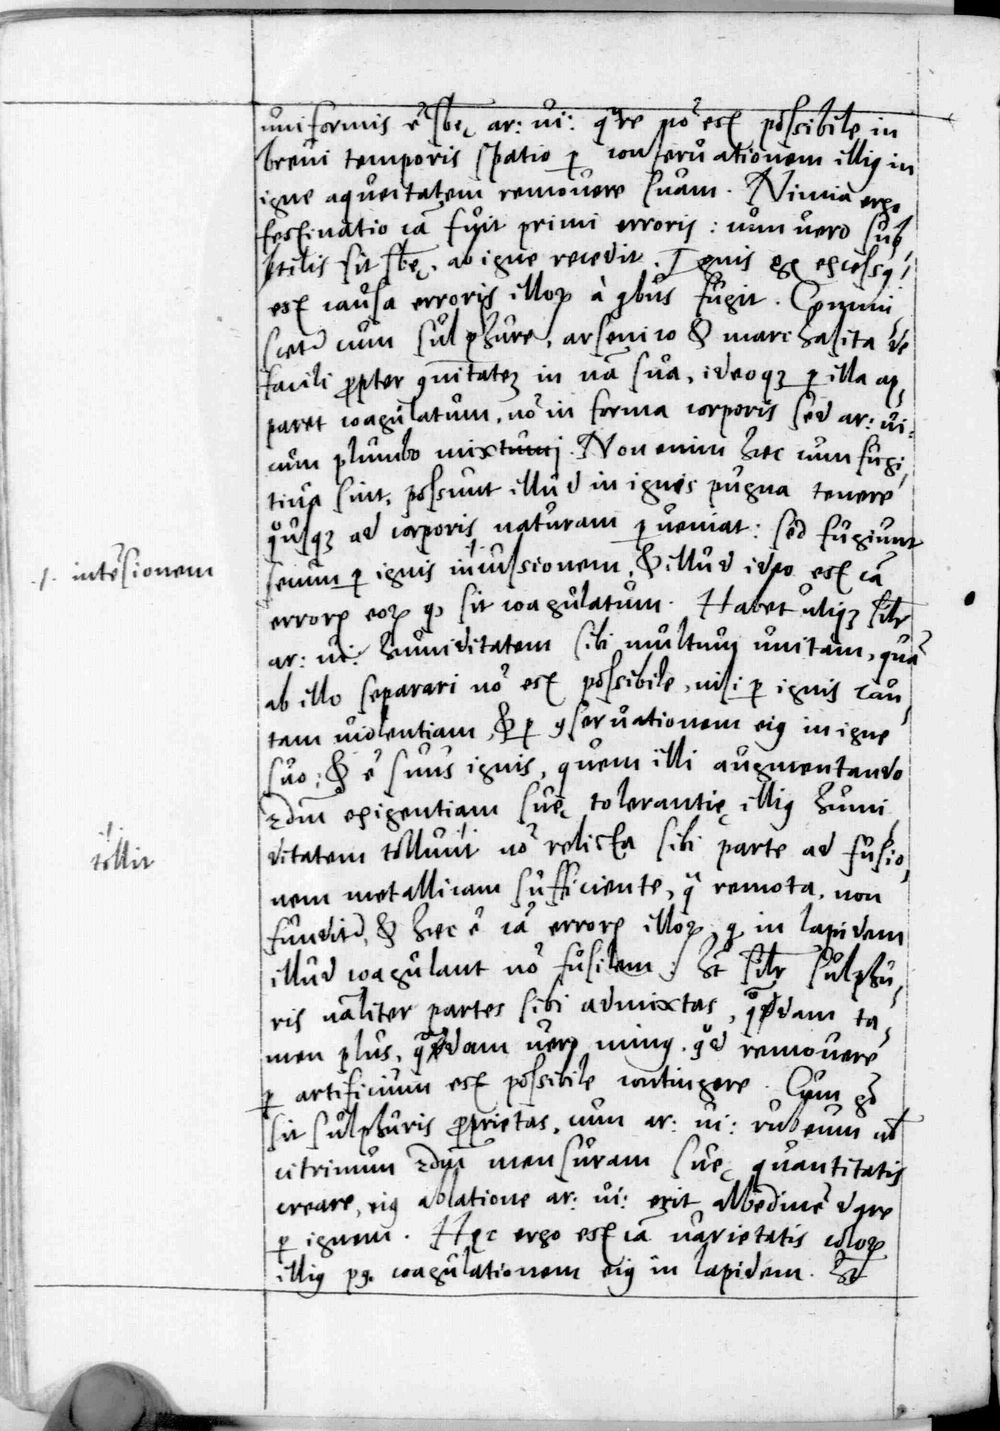 uniformis ē sbę ar: ui: q̄re nō est possibile in
breui temporis spatio p conseruationem illiꝯ in
igne aqueitatem remouere suam. Nimia ergo
festinatio cā fuit primi erroris: cum uero sub,
tilis sit sbę. ab igne recedit. Ignis excessꝯ
est causa erroris illoꝝ à qbus fugit. Commi,
scetr cum sulphure, arsenico & marchasita de
facili ꝓpter ꝯuitatē in nā sua, ideoqꝫ p illa ap,
paret coagulatum, nō in forma corporis sed ar: ui:
cum plumbo mixtum. Non enim hęc cum fugi,
tiua sint, possunt illud in ignis pugna tenere
quusqꝫ ad corporis naturam pueniat: sed fugiunt
secum p ignis inciusionem, & illud ideo est cā
./. intēsionem
erroꝝ eoꝝ qꝯ sit coagulatum. Habet utiqꝫ silr
ar: ui: humiditatem sibi multum unitam, quā
ab illo separari nō est possibile, nisi p ignis cau,
tam uiolentiam, & p ꝯseruationem eiꝯ in igne
suo: & ē suus ignis, quem illi augmentando
scdm exigentiam suę tolerantię illiꝯ humi,
ditatem tollunt nō relicta sibi parte ad fusio,
tollit
nem metallicam sufficiente, q̄ remota, non
funditr, & hęc ē cā erroꝝ illoꝝ, q in lapidem
illud coagulant nō fusilem: ht silr sulphu,
ris nāliter partes sibi admixtas, quoddam ta,
men plus, quoddam uero minꝯ. qd remouere
p artificium est possibile contingere. Cum
sit sulphuris ꝓprietas, cum ar: ui: rubeum ul
citrinum scdm mensuram suę quantitatis
creare, eiꝯ ablatione ar: ui: erit albedinē dare
p ignem. Hęc ergo est cā uarietatis coloꝝ
illiꝯ pꝯ coagulationem eiꝯ in lapidem. ht